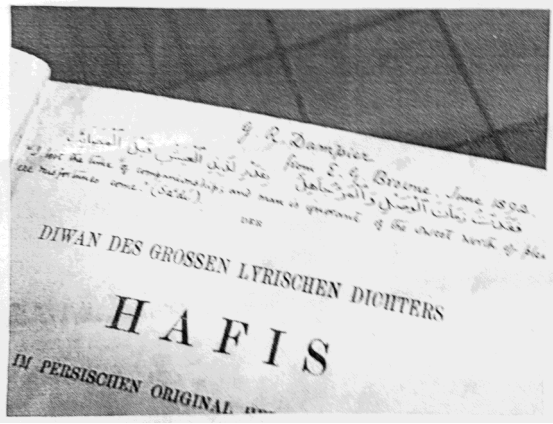 G. R. Dampier
from E. G. Browne. June 1892.
فقدت زمان الوصل والمرء جاهل بقدر لذيذ العيش قبل المصائب
"I lost the time of companionship, and man is ignorant of the sweet worth of plea
ere misfortunes come." (Sa'di).
DER
DIWAN DES GROSSEN LYRISCHEN DICHTERS
HAFIS
IM PERSISCHEN ORIGINAL